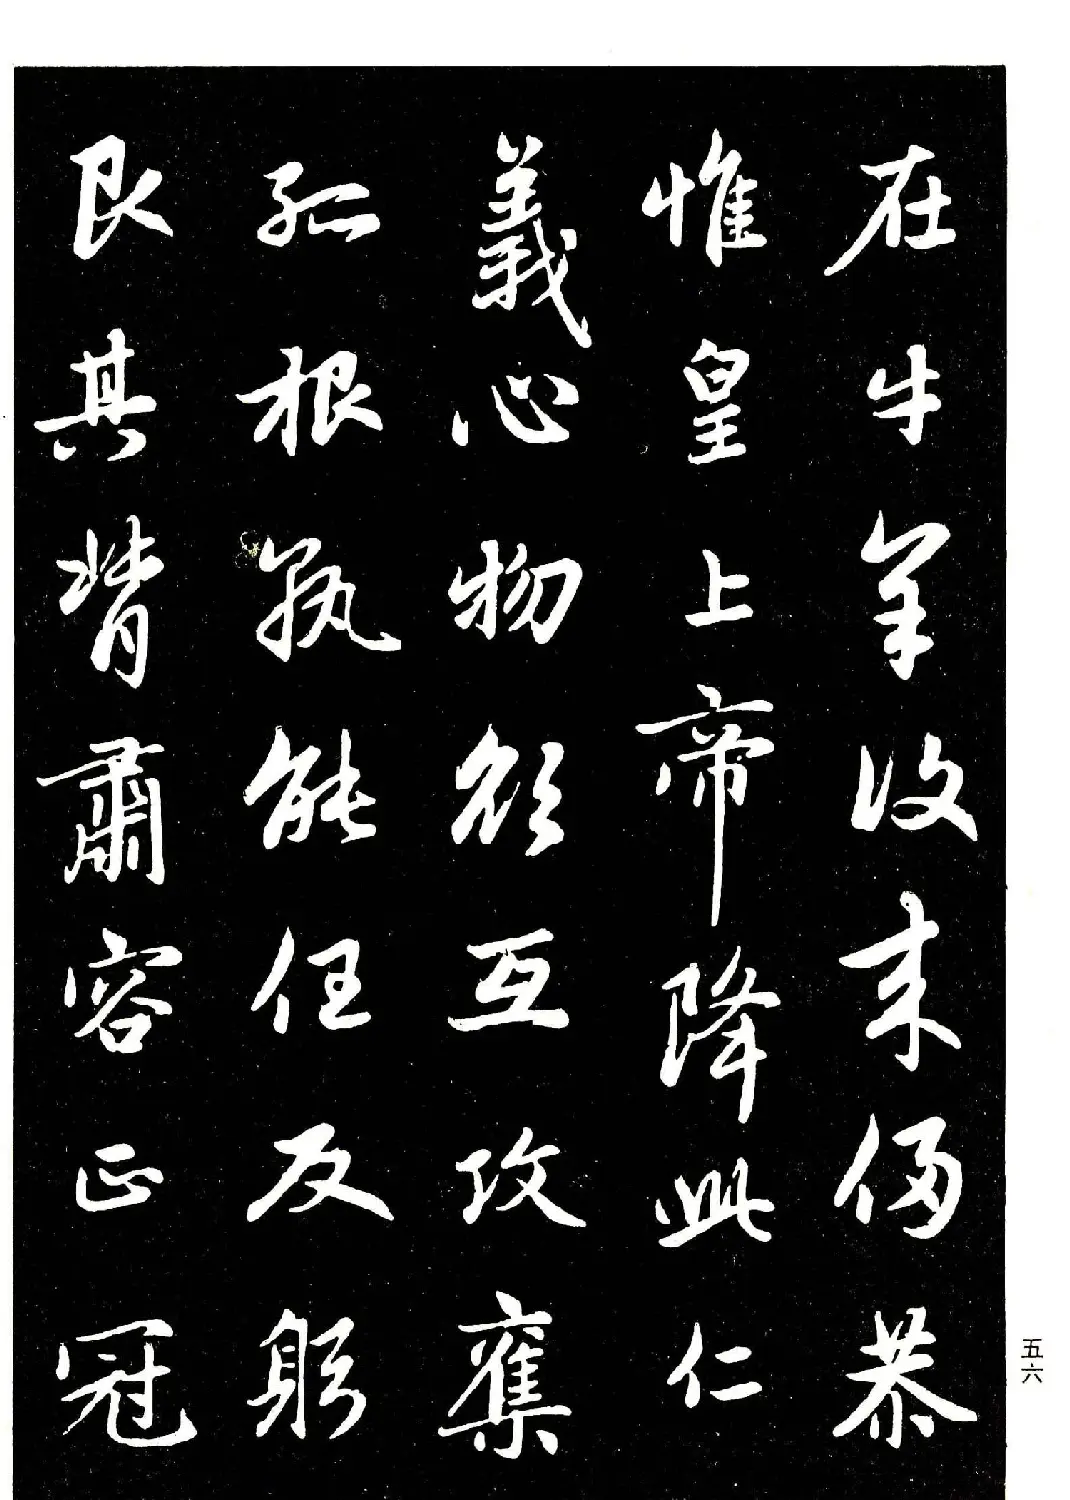 在牛羊復来侵恭
惟皇上帝降此仁
義心物欲互攻奪
孤根孰能任反躬
艮其背肅容正冠
五六